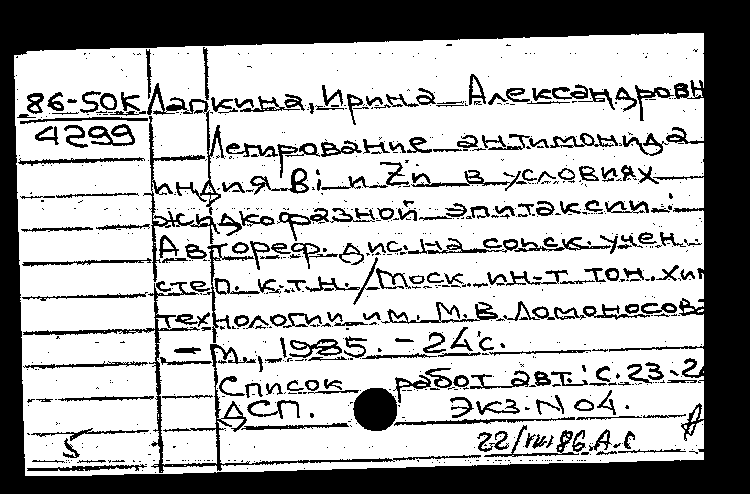 86-50К Лапкина, Ирина Александровн
4299
Легирование антимонида
индия Bi и Zn в условиях
жидкофазной эпитаксии :
Автореф. дис. на соиск. учен.
степ. к.т.н. / Моск ин-т тон. хим
технологии им. М.В. Ломоносова
. – М., 1985. – 24 с.
Список работ авт.: с. 23-24
ДСП. Экз. N 04.
5 22/VIII 86. А.С